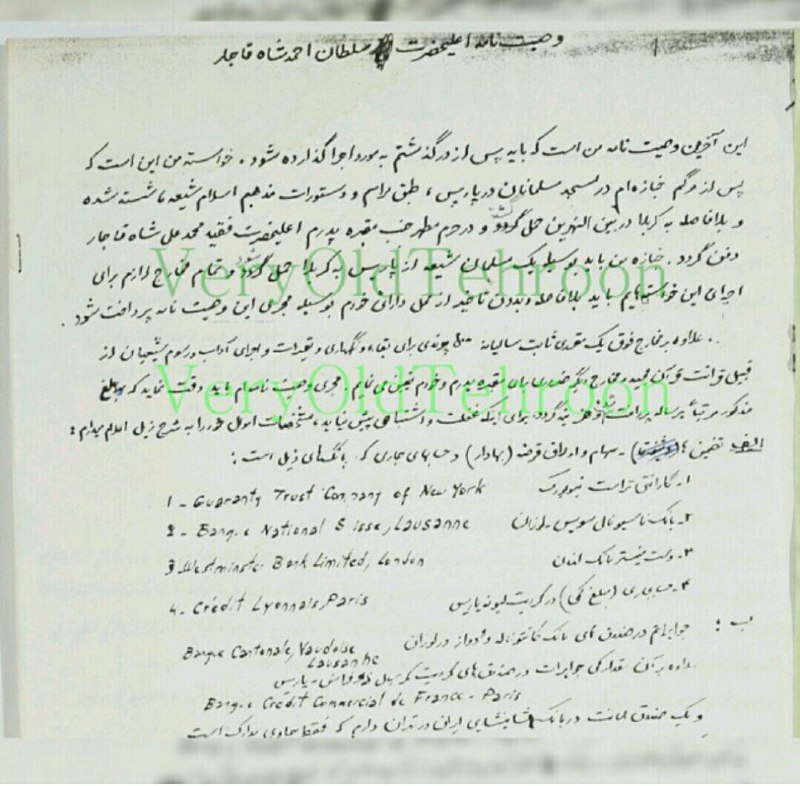 وصیت نامه اعلیحضرت سلطان احمد شاه قاجار
این آخرین وصیت نامه من است که باید پس از درگذشتم به مورد اجرا گذارده شود . خواسته من این است که
پس از مرگم جنازه‌ام در مسجد مسلمانان در پاریس ، طبق مراسم و دستورات مذهبم اسلام شیعه شسته شده
و بلافاصله به کربلا در بین النهرین حمل گردد و در حرم مطهر جنب مقبره پدرم اعلیحضرت فقید محمد علی شاه قاجار
دفن گردد . جنازه من باید بوسیله یک مسلمان شیعه از پاریس به کربلا حمل گردد و تمام مخارج لازم برای
اجرای این خواسته‌ایم باید بلافاصله و بدون تاخیر از محل دارائی خودم بوسیله مجری این وصیت نامه پرداخت شود .
علاوه بر مخارج فوق یک مقرری ثابت سالیانه ۵۰۰ پوندی برای بقاء و نگهداری و تعمیرات و اجرای آداب و رسوم شیعیان از
قبیل قرائت قرآن مجید و مخارج دیگر ضروری برای مقبره پدرم و خودم تعیین می نمایم . مجری وصیت نامه‌ام باید دقت نماید که مبالغ
مذکور مرتباً هر ساله پرداخت گردد. برای اینکه غفلت و اشتباهی پیش نیاید ، مشخصات اموال خود را به شرح ذیل اعلام میدارم :
الف - سهام و اوراق قرضه (بهادار) و حسابهای تجاری که بانکهای ذیل است :
۱- گارانتی تراست نیویورک 1 - Guaranty Trust Company of New York
۲- بانک ناسیونال سویس - لوزان 2 - Banque National Suisse, Lausanne
۳- وست مینستر بانک لندن 3 - Westminster Bank Limited, London
۴- حساب جاری (مبلغ کمی) در کردیت لیونه پاریس 4 - Crédit Lyonnais, Paris
ب : جواهراتم در صندوق های بانک کانتونال ودواز در لوزان Banque Cantonale, Vaudoise Lausanne
علاوه بر آن مقداری جواهرات در صندوق های کردیت کمرسیال دو فرانس - پاریس
Banque Crédit Commercial de France - Paris
و یک صندوق امانت در بانک شاهنشاهی ایران در تهران دارم که فقط حاوی مدارک است
VeryOldTehroon
VeryOldTehroon